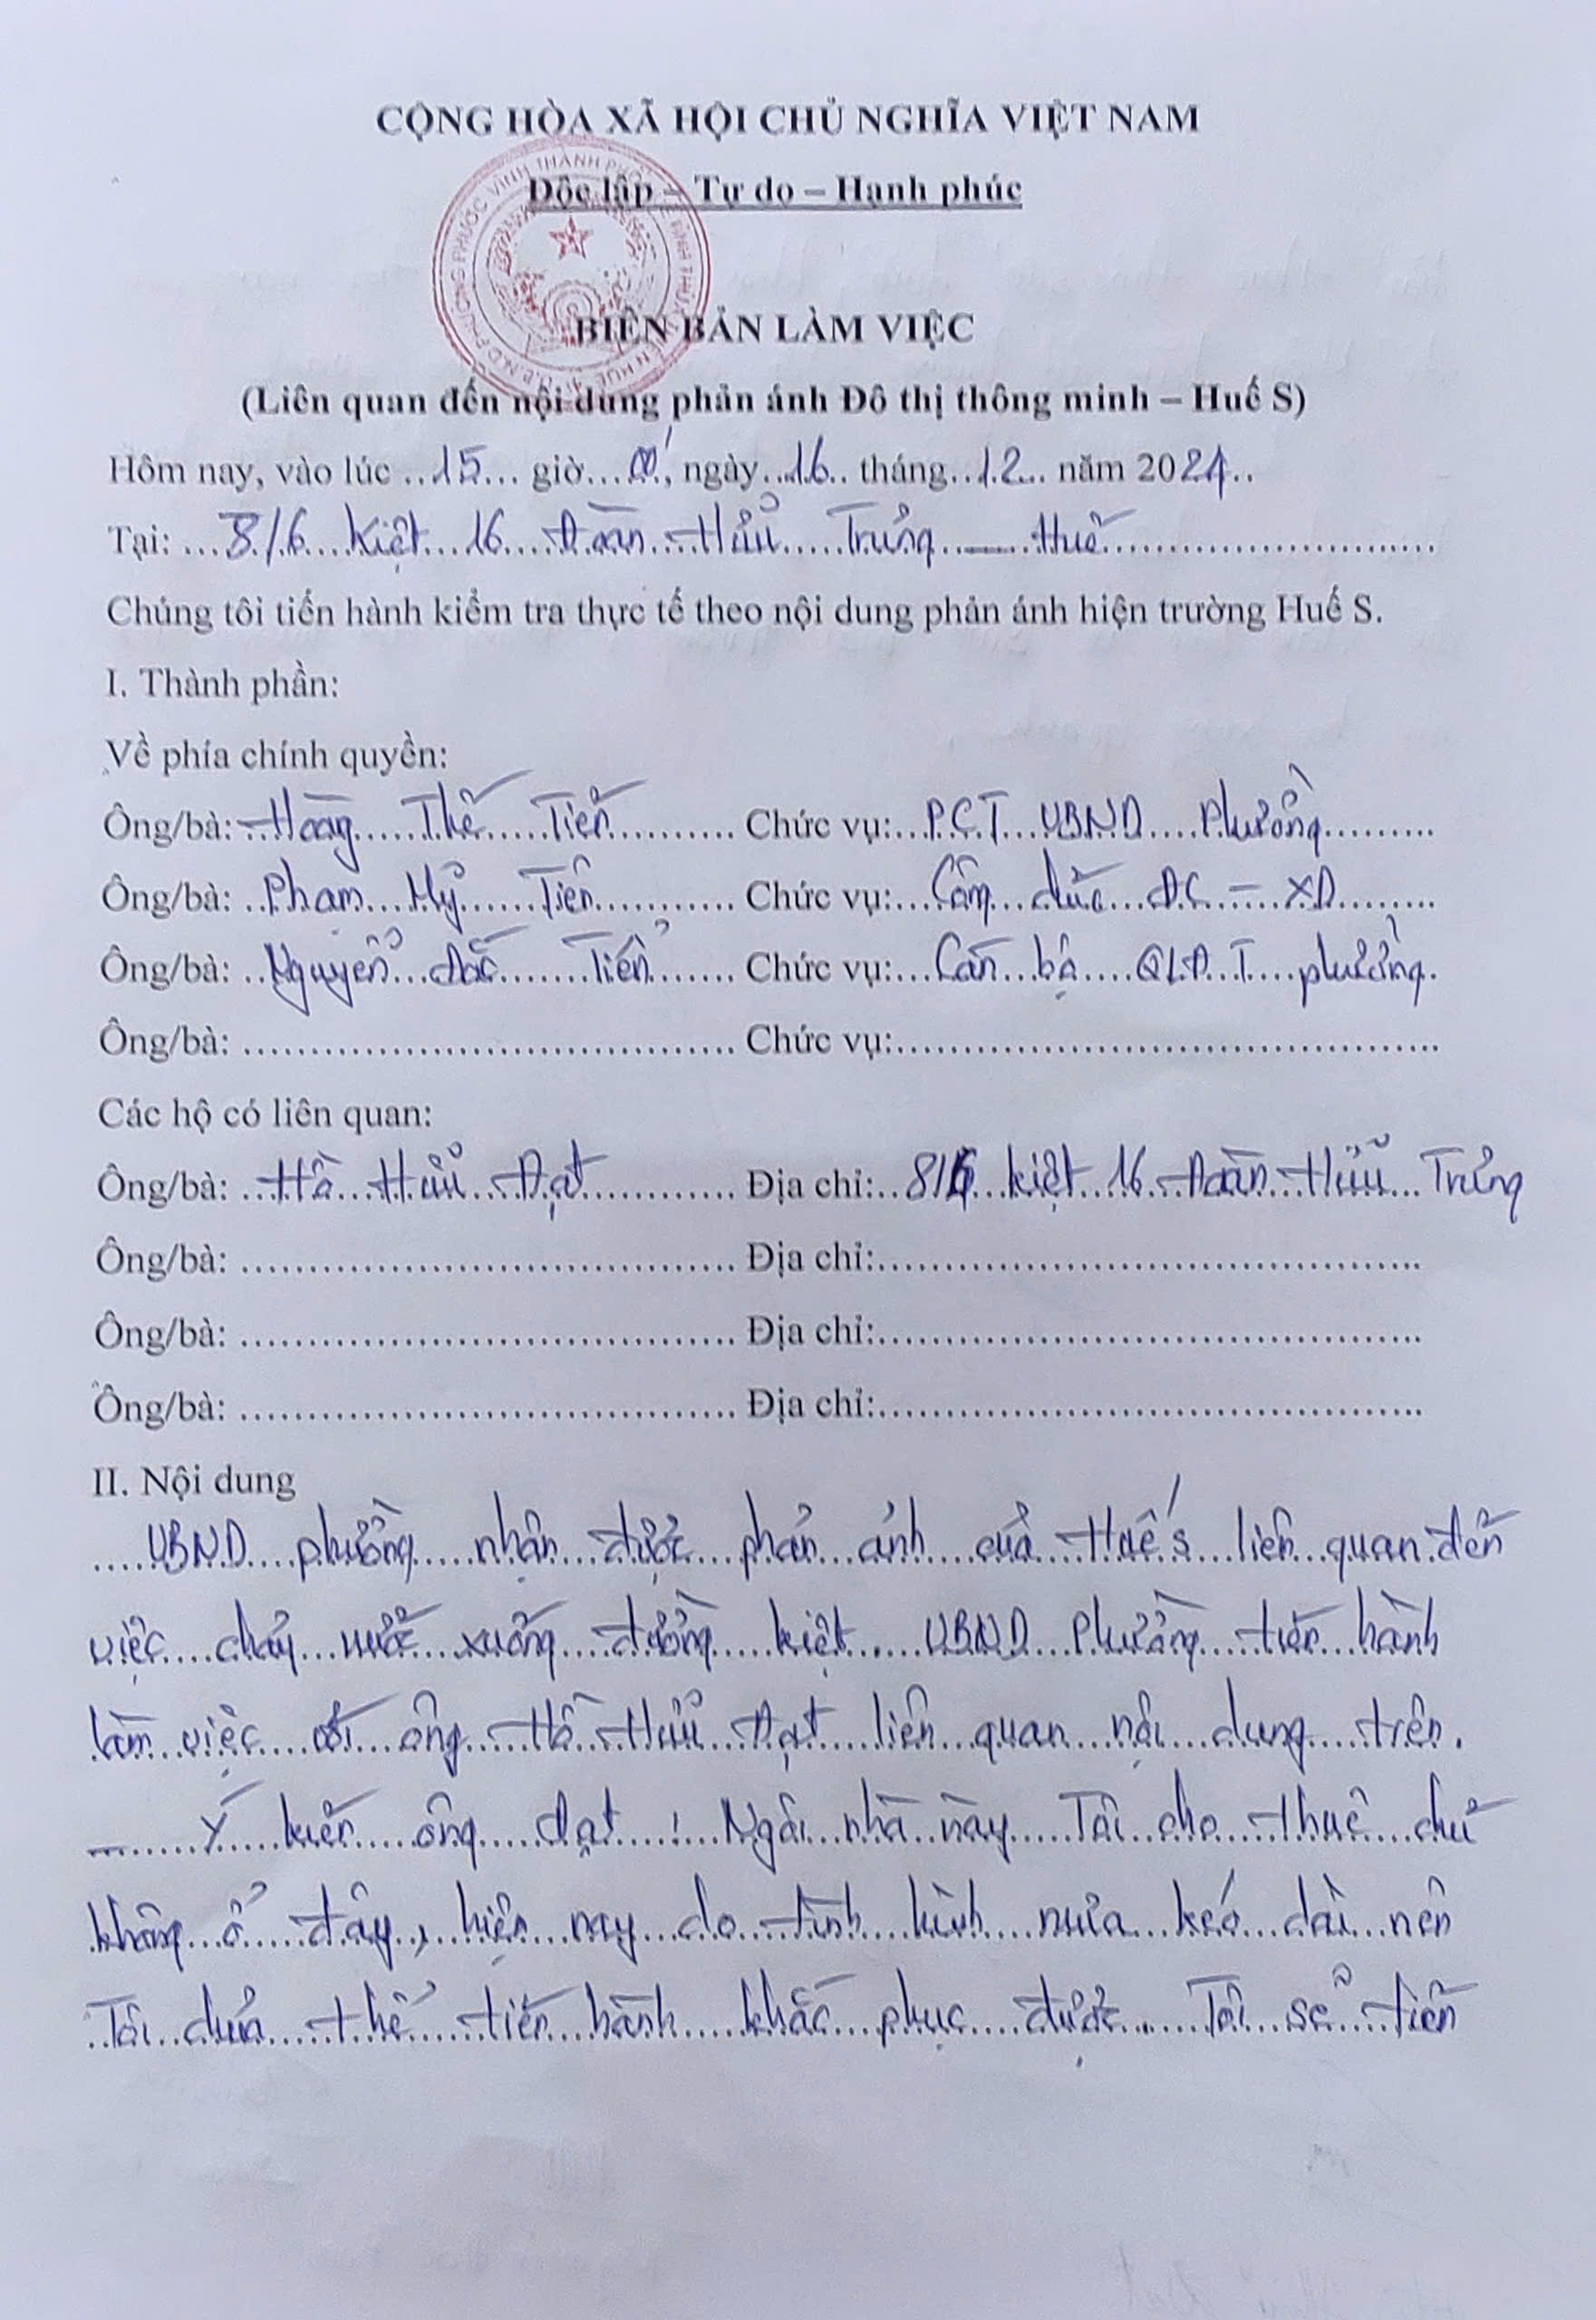 CỘNG HÒA XÃ HỘI CHỦ NGHĨA VIỆT NAM
Độc lập – Tự do – Hạnh phúc
BIÊN BẢN LÀM VIỆC
(Liên quan đến nội dung phản ánh Đô thị thông minh – Huế S)
Hôm nay, vào lúc 15 giờ 00', ngày 16 tháng 12 năm 2024
Tại: 8/6 Kiệt 16 Đoàn Hữu Trưng – Huế
Chúng tôi tiến hành kiểm tra thực tế theo nội dung phản ánh hiện trường Huế S.
I. Thành phần:
Về phía chính quyền:
Ông/bà: Hoàng Thế Tiến Chức vụ: P.CT UBND Phường
Ông/bà: Phạm Mỹ Tiên Chức vụ: Công chức ĐC – XD
Ông/bà: Nguyễn Đắc Tiến Chức vụ: Cán bộ QLĐT phường
Ông/bà: Chức vụ:
Các hộ có liên quan:
Ông/bà: Hồ Hữu Đạt Địa chỉ: 8/6 kiệt 16 Đoàn Hữu Trưng
Ông/bà: Địa chỉ:
Ông/bà: Địa chỉ:
Ông/bà: Địa chỉ:
II. Nội dung
UBND phường nhận được phản ánh của Huế S liên quan đến
việc chảy nước xuống đường kiệt. UBND Phường tiến hành
làm việc với ông Hồ Hữu Đạt liên quan nội dung trên.
Ý kiến ông Đạt: Ngôi nhà này Tôi cho thuê chứ
không ở đây, hiện nay do tình hình mưa kéo dài nên
Tôi chưa thể tiến hành khắc phục được. Tôi sẽ tiến